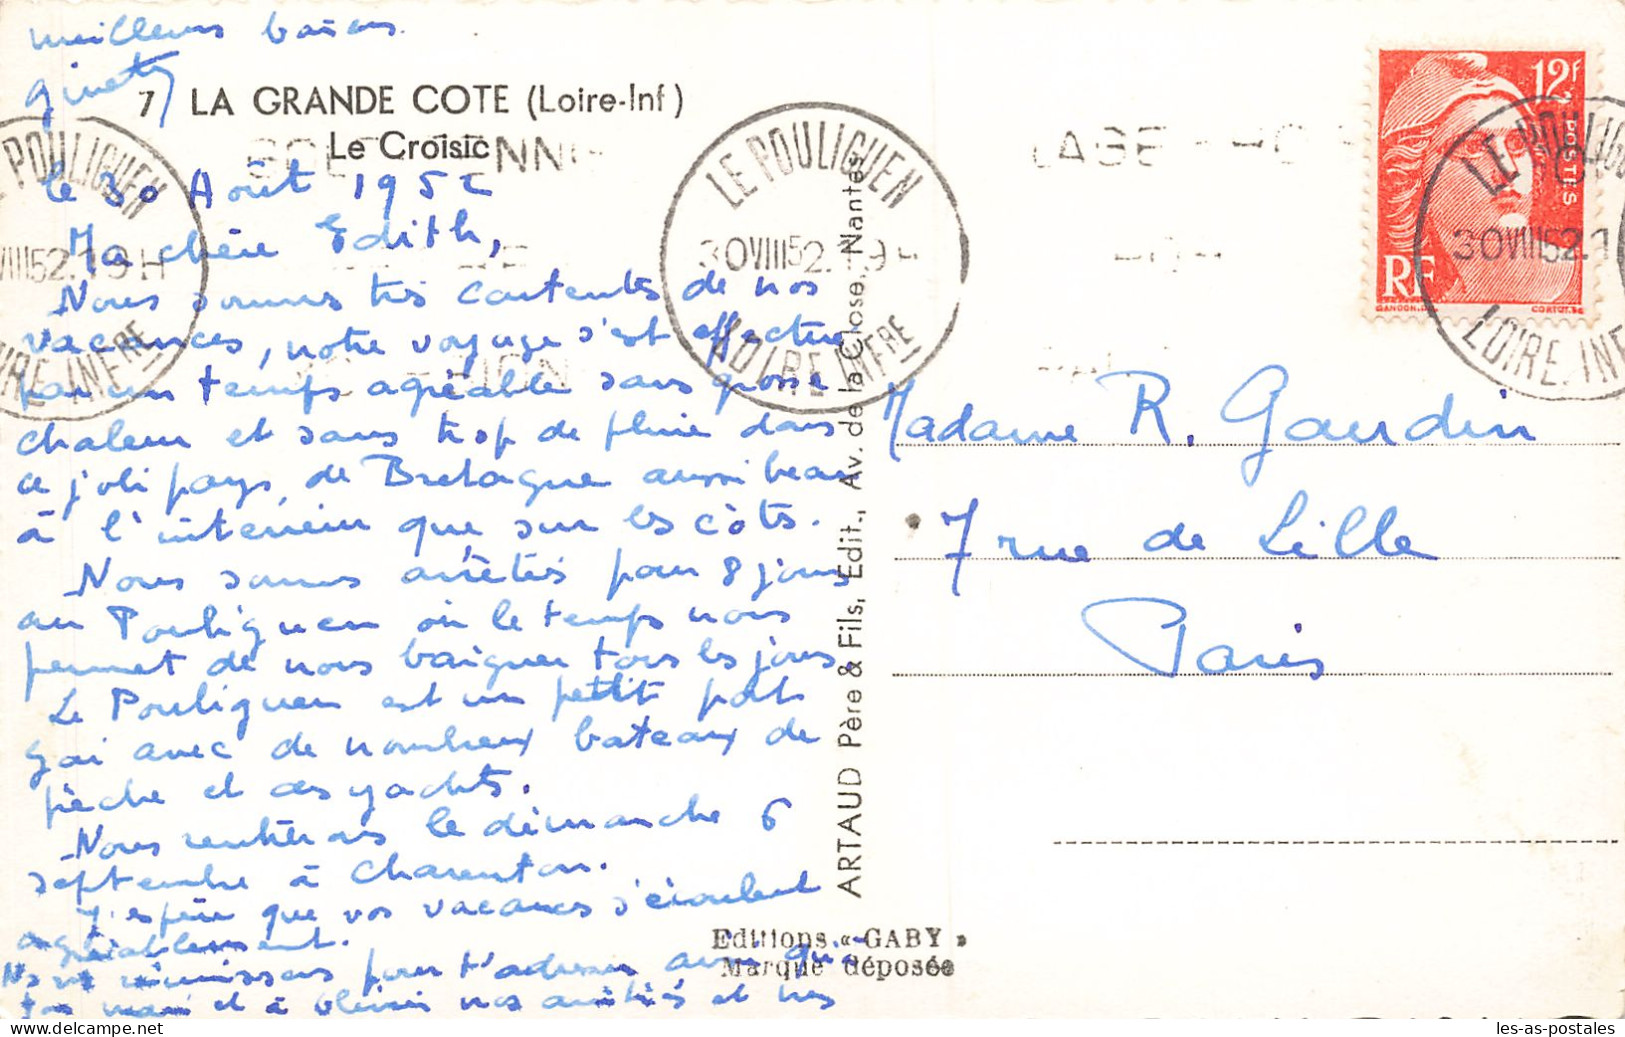 meilleurs baisers.
ginette
7 LA GRANDE COTE (Loire-Inf)
Le Croisic
le 30 Août 1952
Ma chère Edith,
Nous sommes très contentes de nos
vacances, notre voyage s'est effectué
par un temps agréable sans grosse
chaleur et sans trop de pluie dans
ce joli pays de Bretagne aussi beau
à l'intérieur que sur les côtes.
Nous sommes arrêtés pour 8 jours
au Pouliguen où le temps nous
permet de nous baigner tous les jours.
Le Pouliguen est un petit port
gai avec de nombreux bateaux de
pêche et des yachts.
Nous rentrerons le dimanche 6
septembre à Charenton.
J'espère que vos vacances s'écoulent
agréablement.
Ns ns réunissons pour t'adresser ainsi qu'à
ton mari et à Olivier nos amitiés et nos
ARTAUD Père & Fils, Edit., Av. de la Close, Nantes
Editions « GABY »
Marque déposée
LE POULIGUEN
30VIII52.19H
LOIRE INFRE
LE POULIGUEN
30VIII52.19H
LOIRE INFRE
LE POULIGUEN
30VIII52.1
LOIRE INF
12F
POSTES
RF
GANDON.DEL
CORTOT.SC
Madame R. Gaudin
7 rue de Lille
Paris
les-as-postales
www.delcampe.net